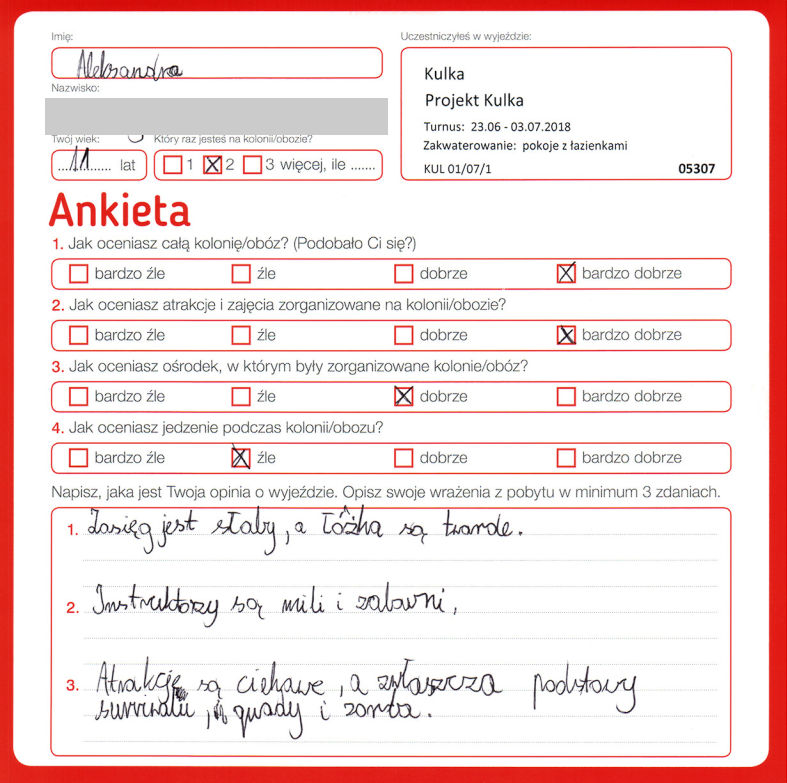 Imię:
Aleksandra
Nazwisko:
Twój wiek:
11 lat
Który raz jesteś na kolonii/obozie?
1 2 3 więcej, ile .......
Uczestniczyłeś w wyjeździe:
Kulka
Projekt Kulka
Turnus: 23.06 - 03.07.2018
Zakwaterowanie: pokoje z łazienkami
KUL 01/07/1 05307
Ankieta
1. Jak oceniasz całą kolonię/obóz? (Podobało Ci się?)
bardzo źle źle dobrze bardzo dobrze
2. Jak oceniasz atrakcje i zajęcia zorganizowane na kolonii/obozie?
bardzo źle źle dobrze bardzo dobrze
3. Jak oceniasz ośrodek, w którym były zorganizowane kolonie/obóz?
bardzo źle źle dobrze bardzo dobrze
4. Jak oceniasz jedzenie podczas kolonii/obozu?
bardzo źle źle dobrze bardzo dobrze
Napisz, jaka jest Twoja opinia o wyjeździe. Opisz swoje wrażenia z pobytu w minimum 3 zdaniach.
1. Zasięg jest słaby, a łóżka są twarde.
2. Instruktorzy są mili i zabawni,
3. Atrakcje są ciekawe, a zwłaszcza podstawy
survivalu, quady i zorba.